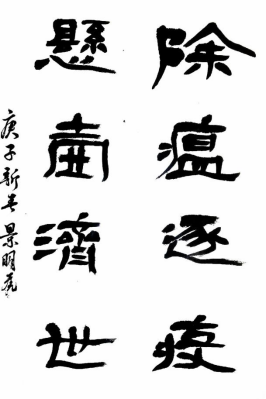 除瘟逐疫
懸壺濟世
庚子新春景明書